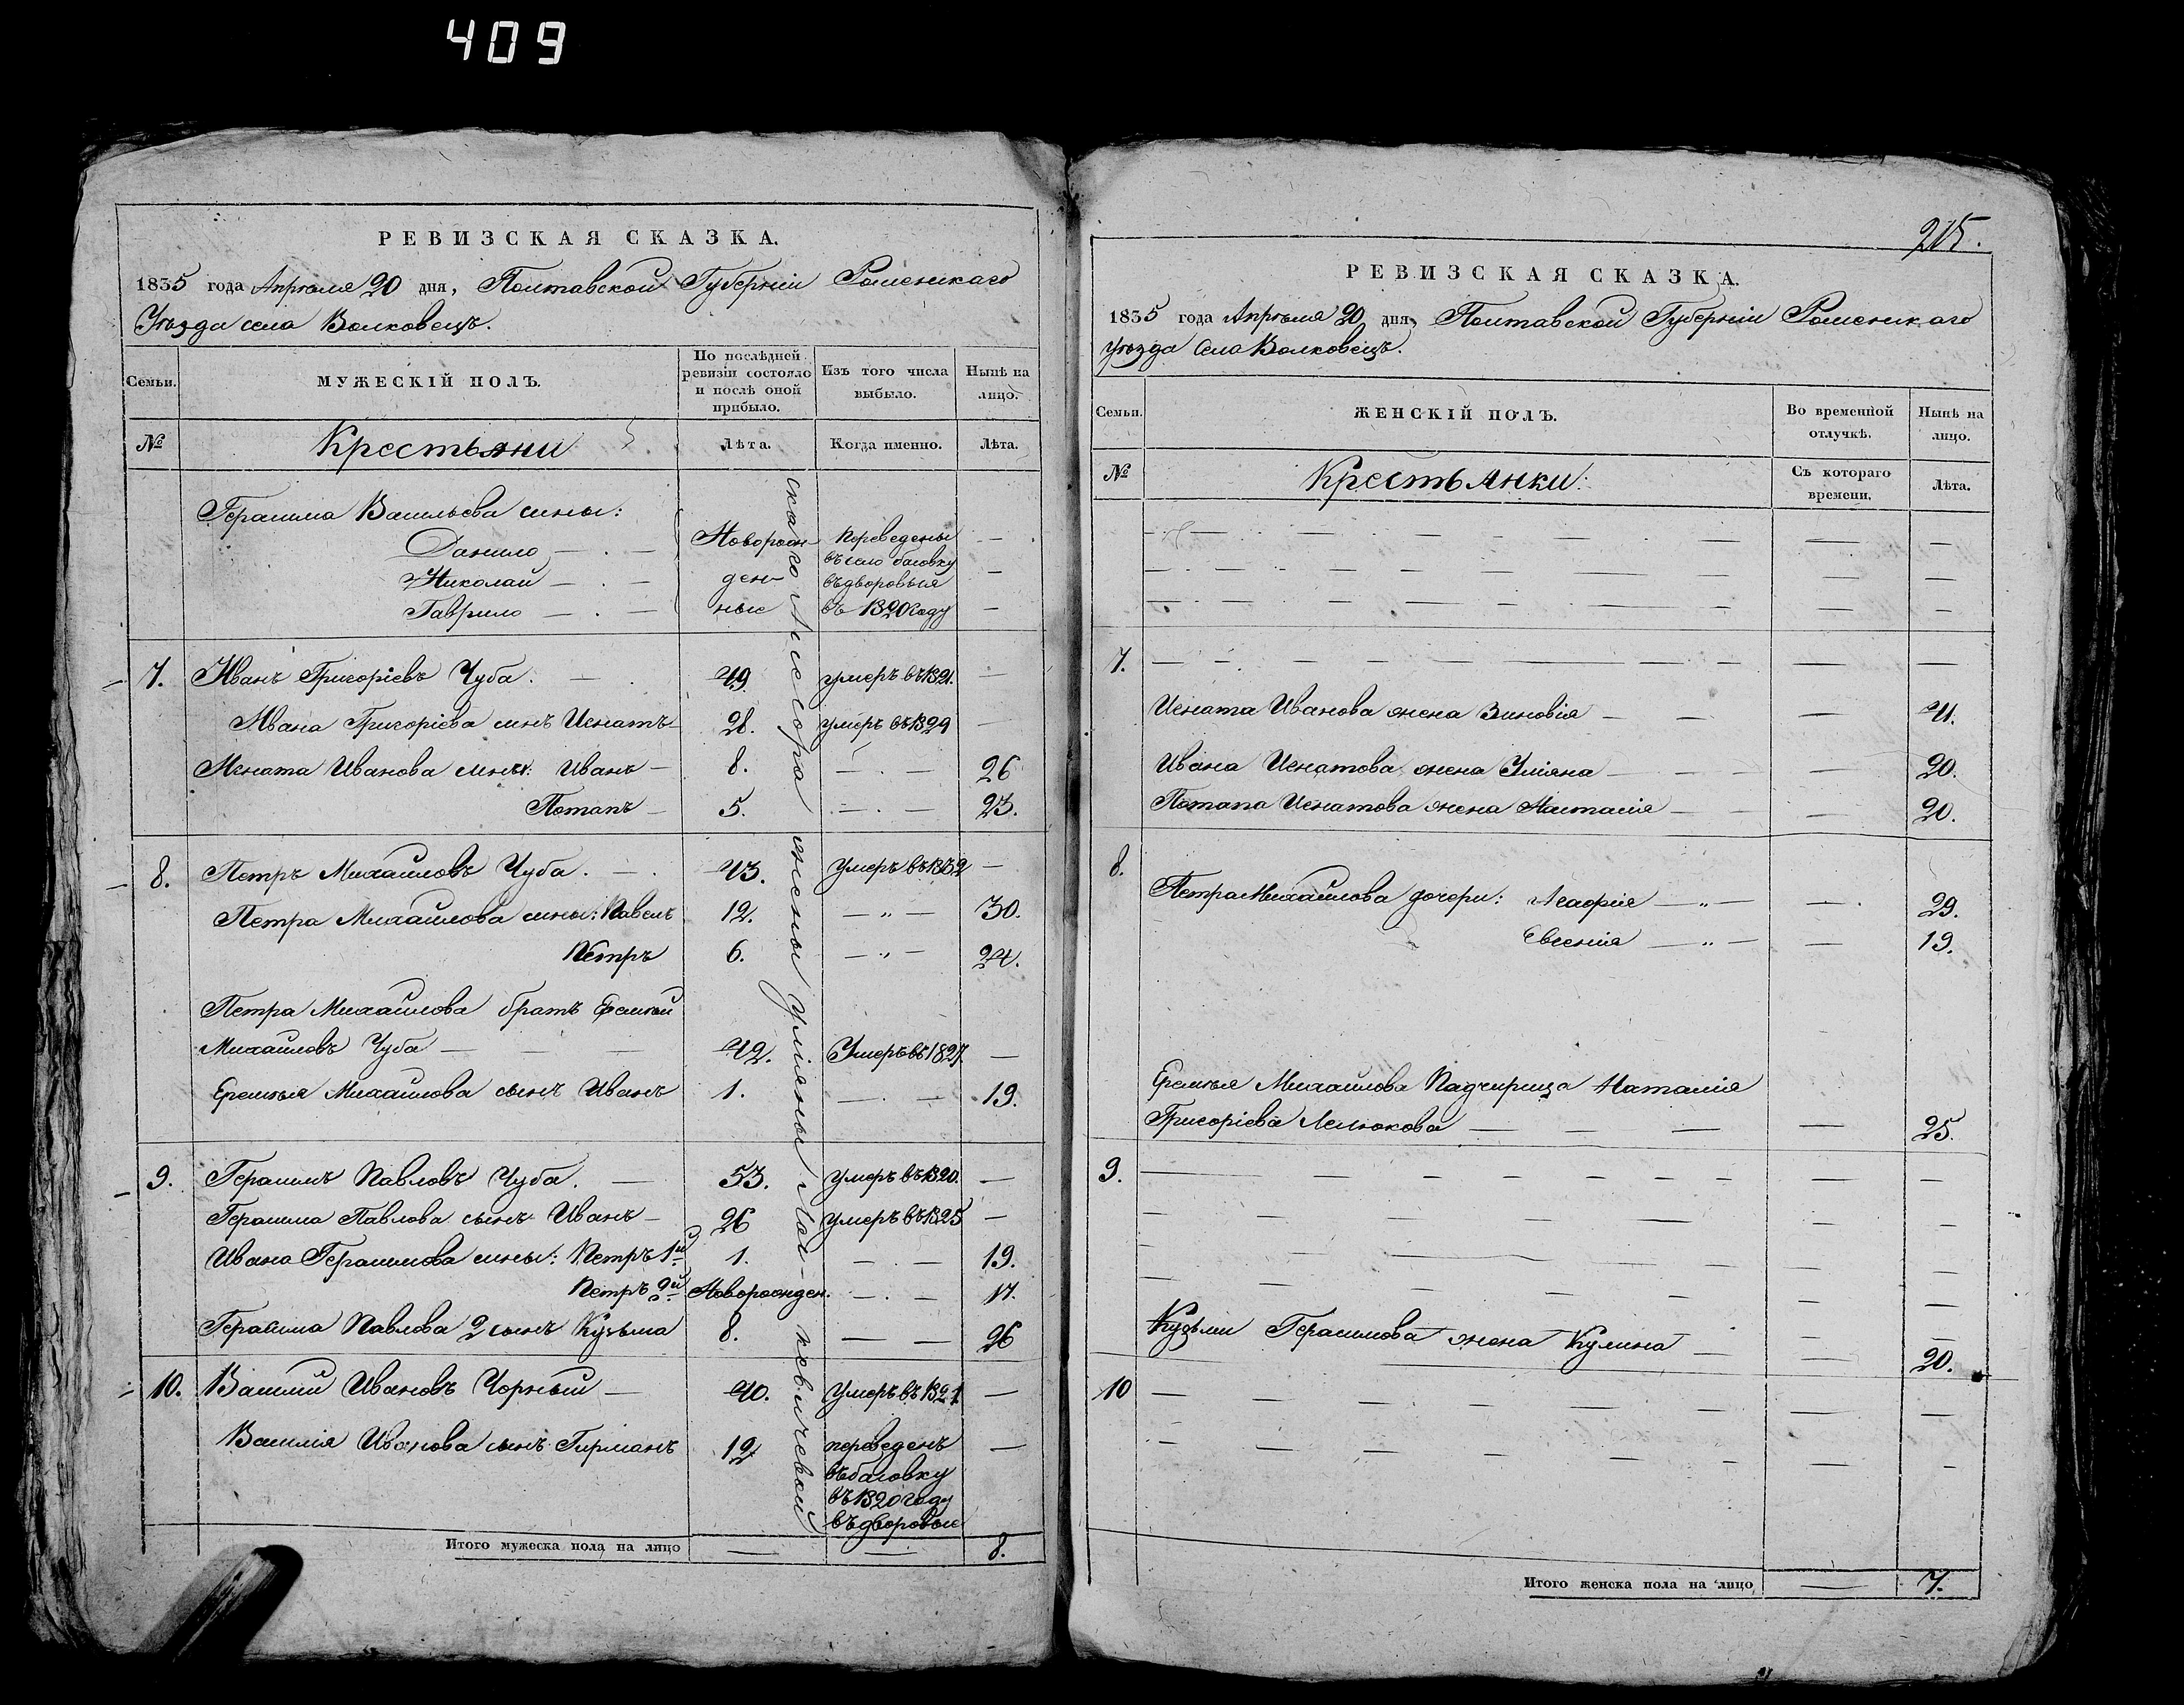 409
РЕВИЗСКАЯ СКАЗКА.
1835 года Апрѣля 20 дня, Полтавской Губерніи Роменскаго
Уѣзда села Волковецъ.
Семьи.
МУЖЕСКІЙ ПОЛЪ.
По послѣдней ревизіи состояло и послѣ оной прибыло.
Изъ того числа выбыло.
Нынѣ на лицо.
№
Крестьяни
Лѣта.
Когда именно.
Лѣта.
Герасима Васильева сыны:
Данило — . — Новорож переведены —
въ село басовку
Николай — . — ден въ дворовыя —
Гаврило — . — ные въ 1820 году —
7. Иванъ Григоріевъ Чуба. — 49. умеръ въ 1821. —
Ивана Григоріева сынъ Игнатъ — 28. умеръ въ 1829 —
Игната Иванова сыны: Иванъ — 8. — . — 26
Потапъ — 5. — . — 23.
8. Петръ Михайловъ Чуба. — . 43. Умеръ въ 1832 —
Петра Михайлова сыны: Павелъ 12. — „ — 30.
Петръ 6. — „ — 24.
Петра Михайлова братъ Еремѣй
Михайловъ Чуба — — — 42. Умеръ въ 1827. —
Еремѣя Михайлова сынъ Иванъ 1. — . — 19.
9. Герасимъ Павловъ Чуба. — 53. умеръ въ 1820. —
Герасима Павлова сынъ Иванъ — 26 умеръ въ 1825 —
Ивана Герасимова сыны: Петръ 1й 1. — . — 19.
Петръ 2й Новорожден. — . — 17.
Герасима Павлова 2 сынъ Кузьма 8. — — 26
10. Василий Ивановъ Чорный — 40. Умеръ въ 1821 —
Василія Иванова сынъ Гирманъ 12 переведенъ —
въ басовку
въ 1820 году
въ дворовые
Итого мужеска пола на лицо — — 8.
жены Уліяны
215.
РЕВИЗСКАЯ СКАЗКА.
1835 года Апрѣля 20 дня, Полтавской Губерніи Роменскаго
уѣзда Села Волковецъ.
Семьи.
ЖЕНСКІЙ ПОЛЪ.
Во временной отлучкѣ.
Нынѣ на лицо.
№
Крестьянки:
Съ котораго времени.
Лѣта.
7.
Игната Иванова жена Зиновія — — — 41.
Ивана Игнатова жена Уліяна — — — 20.
Потапа Игнатова жена Настасія — — — 20.
8.
Петра Михайлова дочери: Агафія — „ — — . 29.
Евгенія — „ — — 19.
Еремѣя Михайлова Падчирица Наталія
Григоріева — — — — 25.
9.
Кузьми Герасимова жена Кулина — — 20.
10
Итого женска пола на лицо — 7.